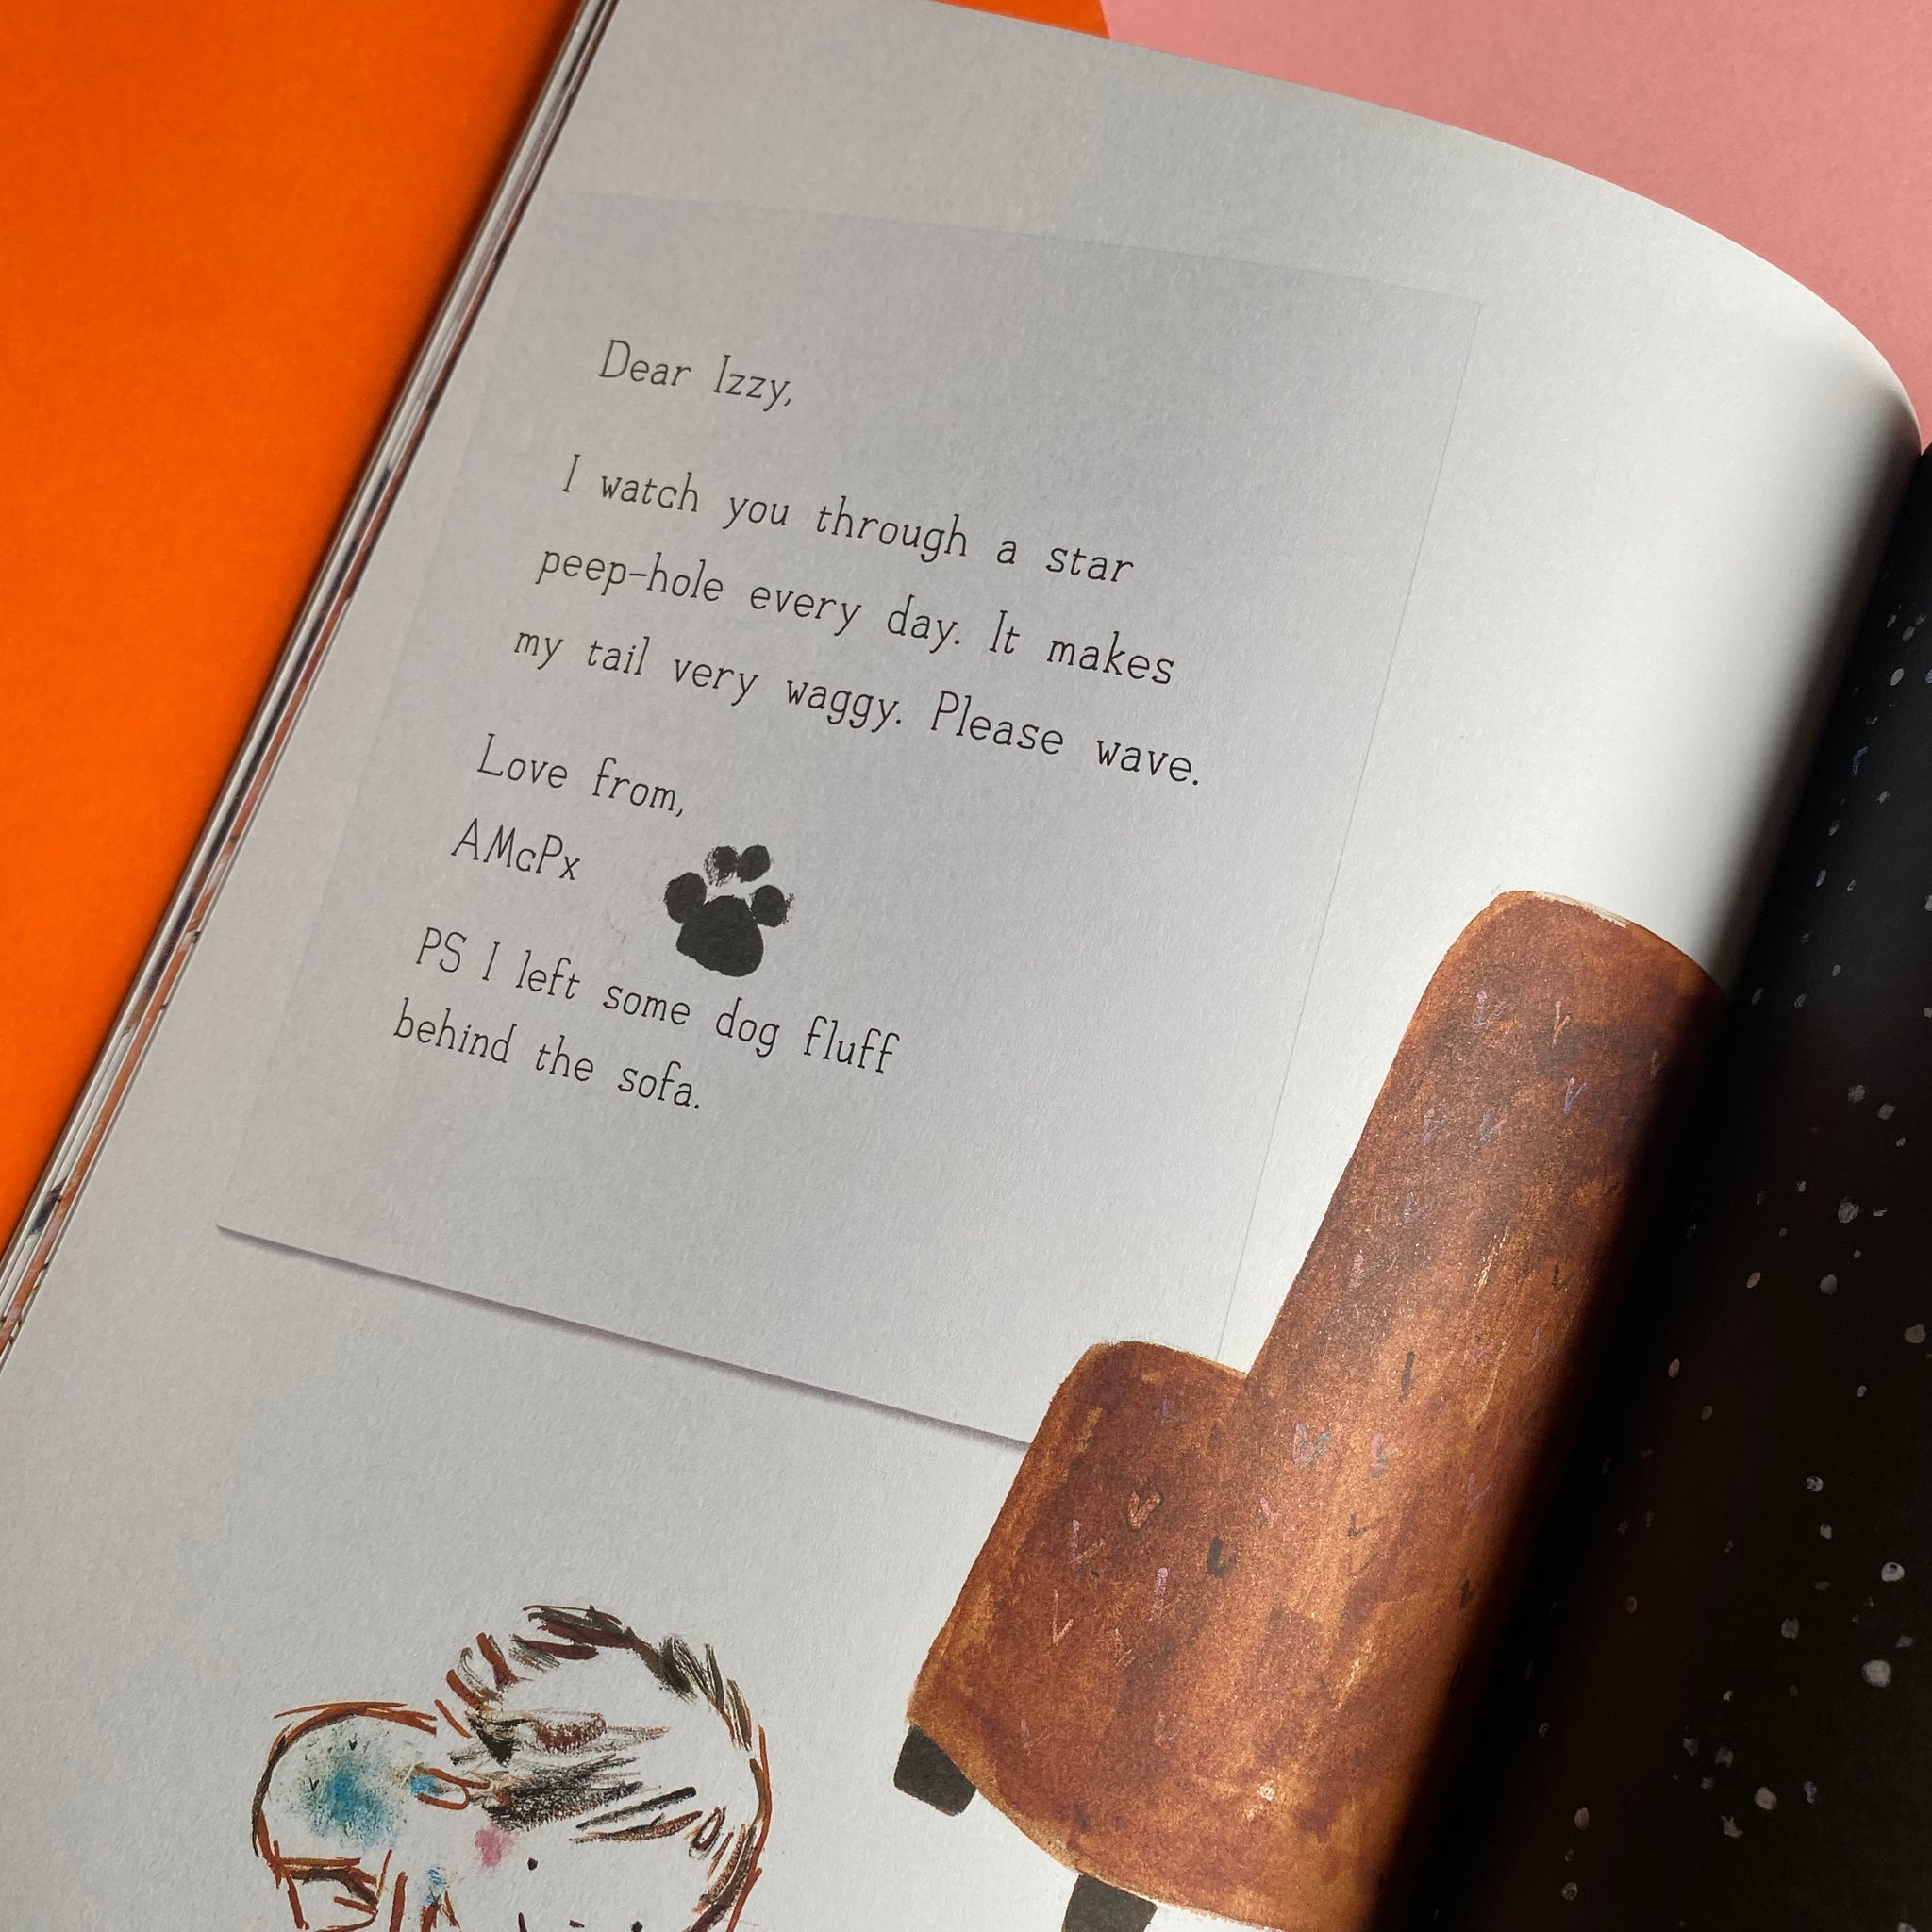 Dear Izzy,
I watch you through a star
peep-hole every day. It makes
my tail very waggy. Please wave.
Love from,
AMcPx
PS I left some dog fluff
behind the sofa.